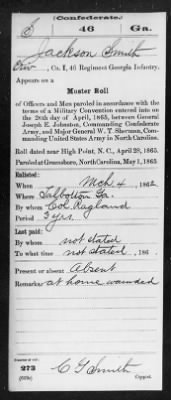 (Confederate.)
S 46 Ga.
Jackson Smith
Priv., Co. I, 46 Regiment Georgia Infantry.
Appears on a
Muster Roll
of Officers and Men paroled in accordance with the
terms of a Military Convention entered into on
the 26th day of April, 1865, between General
Joseph E. Johnston, Commanding Confederate
Army, and Major General W. T. Sherman, Com-
manding United States Army in North Carolina.
Roll dated near High Point, N. C., April 28, 1865.
Paroled at Greensboro, North Carolina, May 1, 1865.
Enlisted:
When Mch 4, 1862
Where Talbotton Ga.
By whom Col Ragland
Period 3 yrs.
Last paid:
By whom not stated
To what time not stated, 186 .
Present or absent Absent
Remarks: at home wounded
Number of roll:
273
C G Smith
Copyist.